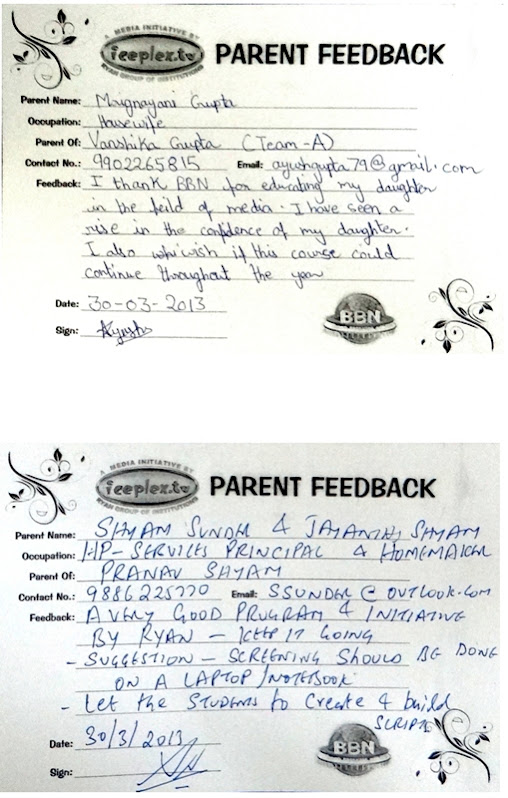 A MEDIA INITIATIVE BY
iceplex.tv
RYAN GROUP OF INSTITUTIONS
PARENT FEEDBACK
Parent Name: Mrignayani Gupta
Occupation: Housewife
Parent Of: Vanshika Gupta (Team-A)
Contact No.: 9902265815 Email: ayushgupta79@gmail.com
Feedback: I thank BBN for educating my daughter
in the feild of media. I have seen a
rise in the confidence of my daughter.
I also wish if this course could
continue throughout the year
Date: 30-03-2013
Sign: Ayush
BBN
A MEDIA INITIATIVE BY
iceplex.tv
RYAN GROUP OF INSTITUTIONS
PARENT FEEDBACK
Parent Name: SHYAM SUNDER & JAYANTHI SHYAM
Occupation: HP-SERVICES PRINCIPAL & HOMEMAKER
Parent Of: PRANAV SHYAM
Contact No.: 9886225770 Email: SSUNDER@OUTLOOK.COM
Feedback: A VERY GOOD PROGRAM & INITIATIVE
BY RYAN - KEEP IT GOING
- SUGGESTION - SCREENING SHOULD BE DONE
ON A LAPTOP/NOTEBOOK
- Let the STUDENTS to Create & build
SCRIPTS
Date: 30/3/2013
Sign:
BBN